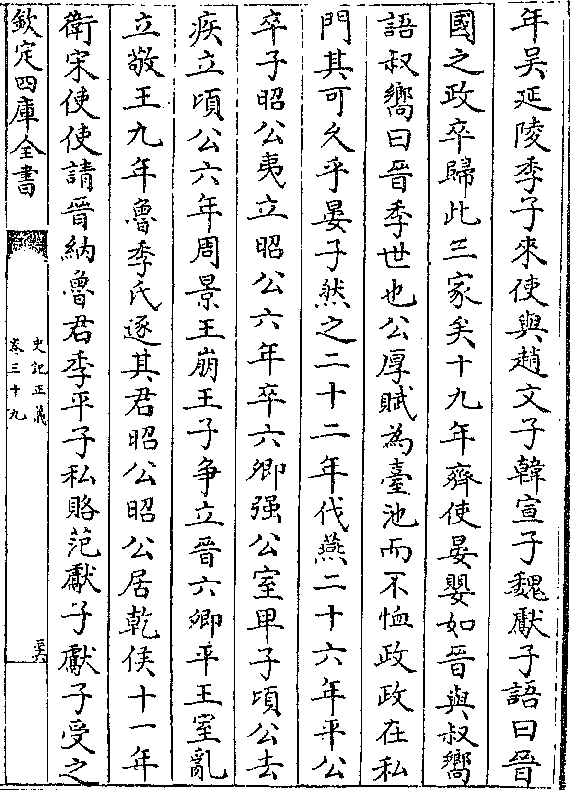 年吴延陵季子來使與趙文子韓宣子魏獻子語曰晉
國之政卒歸此三家矣十九年齊使晏嬰如晉與叔嚮
語叔嚮曰晉季世也公厚賦為臺池而不恤政政在私
門其可久乎晏子然之二十二年伐燕二十六年平公
卒子昭公夷立昭公六年卒六卿强公室卑子頃公去
疾立頃公六年周景王崩王子争立晉六卿平王室亂
立敬王九年魯季氏逐其君昭公昭公居乾侯十一年
衛宋使使請晉納魯君季平子私賂范獻子獻子受之
欽定四庫全書
史記正義
卷三十九